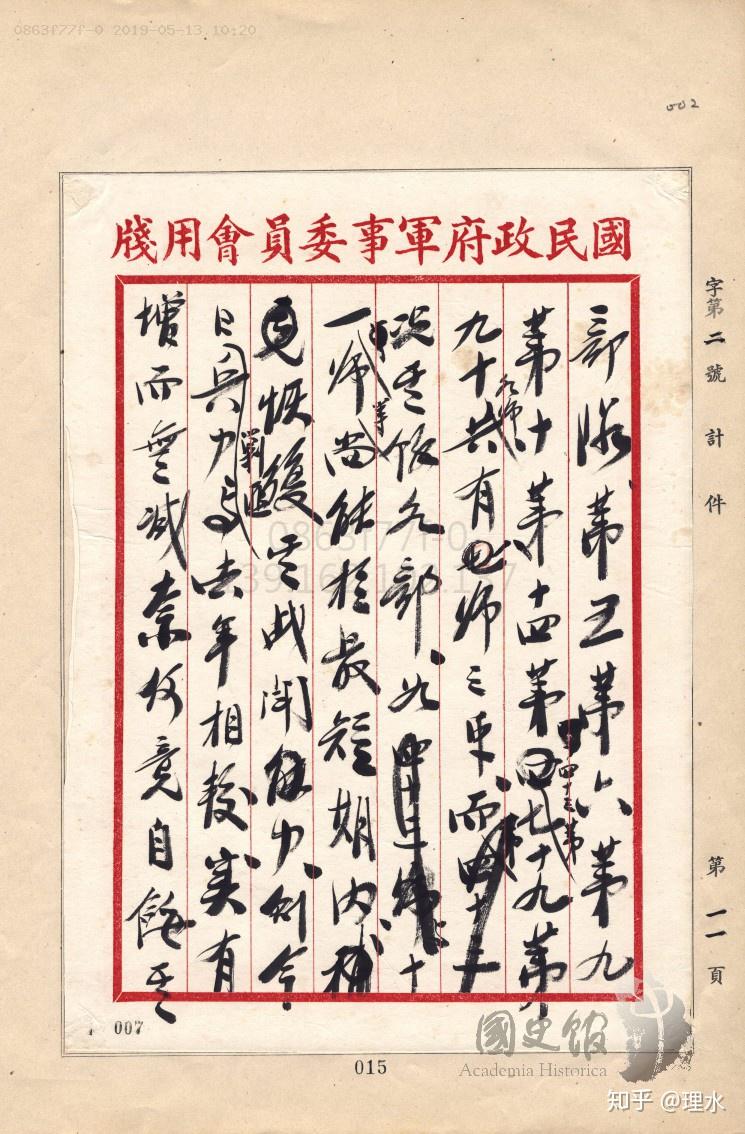 0863f77f-0 2019-05-13 10:20
002
國民政府軍事委員會用牋
部隊第五第六第九
第十第十四第 四十三第 七十九第
九十 九師 共有 師之衆、而
況其餘各部、九 十
一師 等 尚能於最短期內補
恢復其戰鬥能力、則今
日 剿匪 兵力與去年相較、實有
增而無減奈何竟自餒其
字第二號 計 件 第 頁
0863f77f-0
007
015
國史館
Academia Historica
知乎 @理水